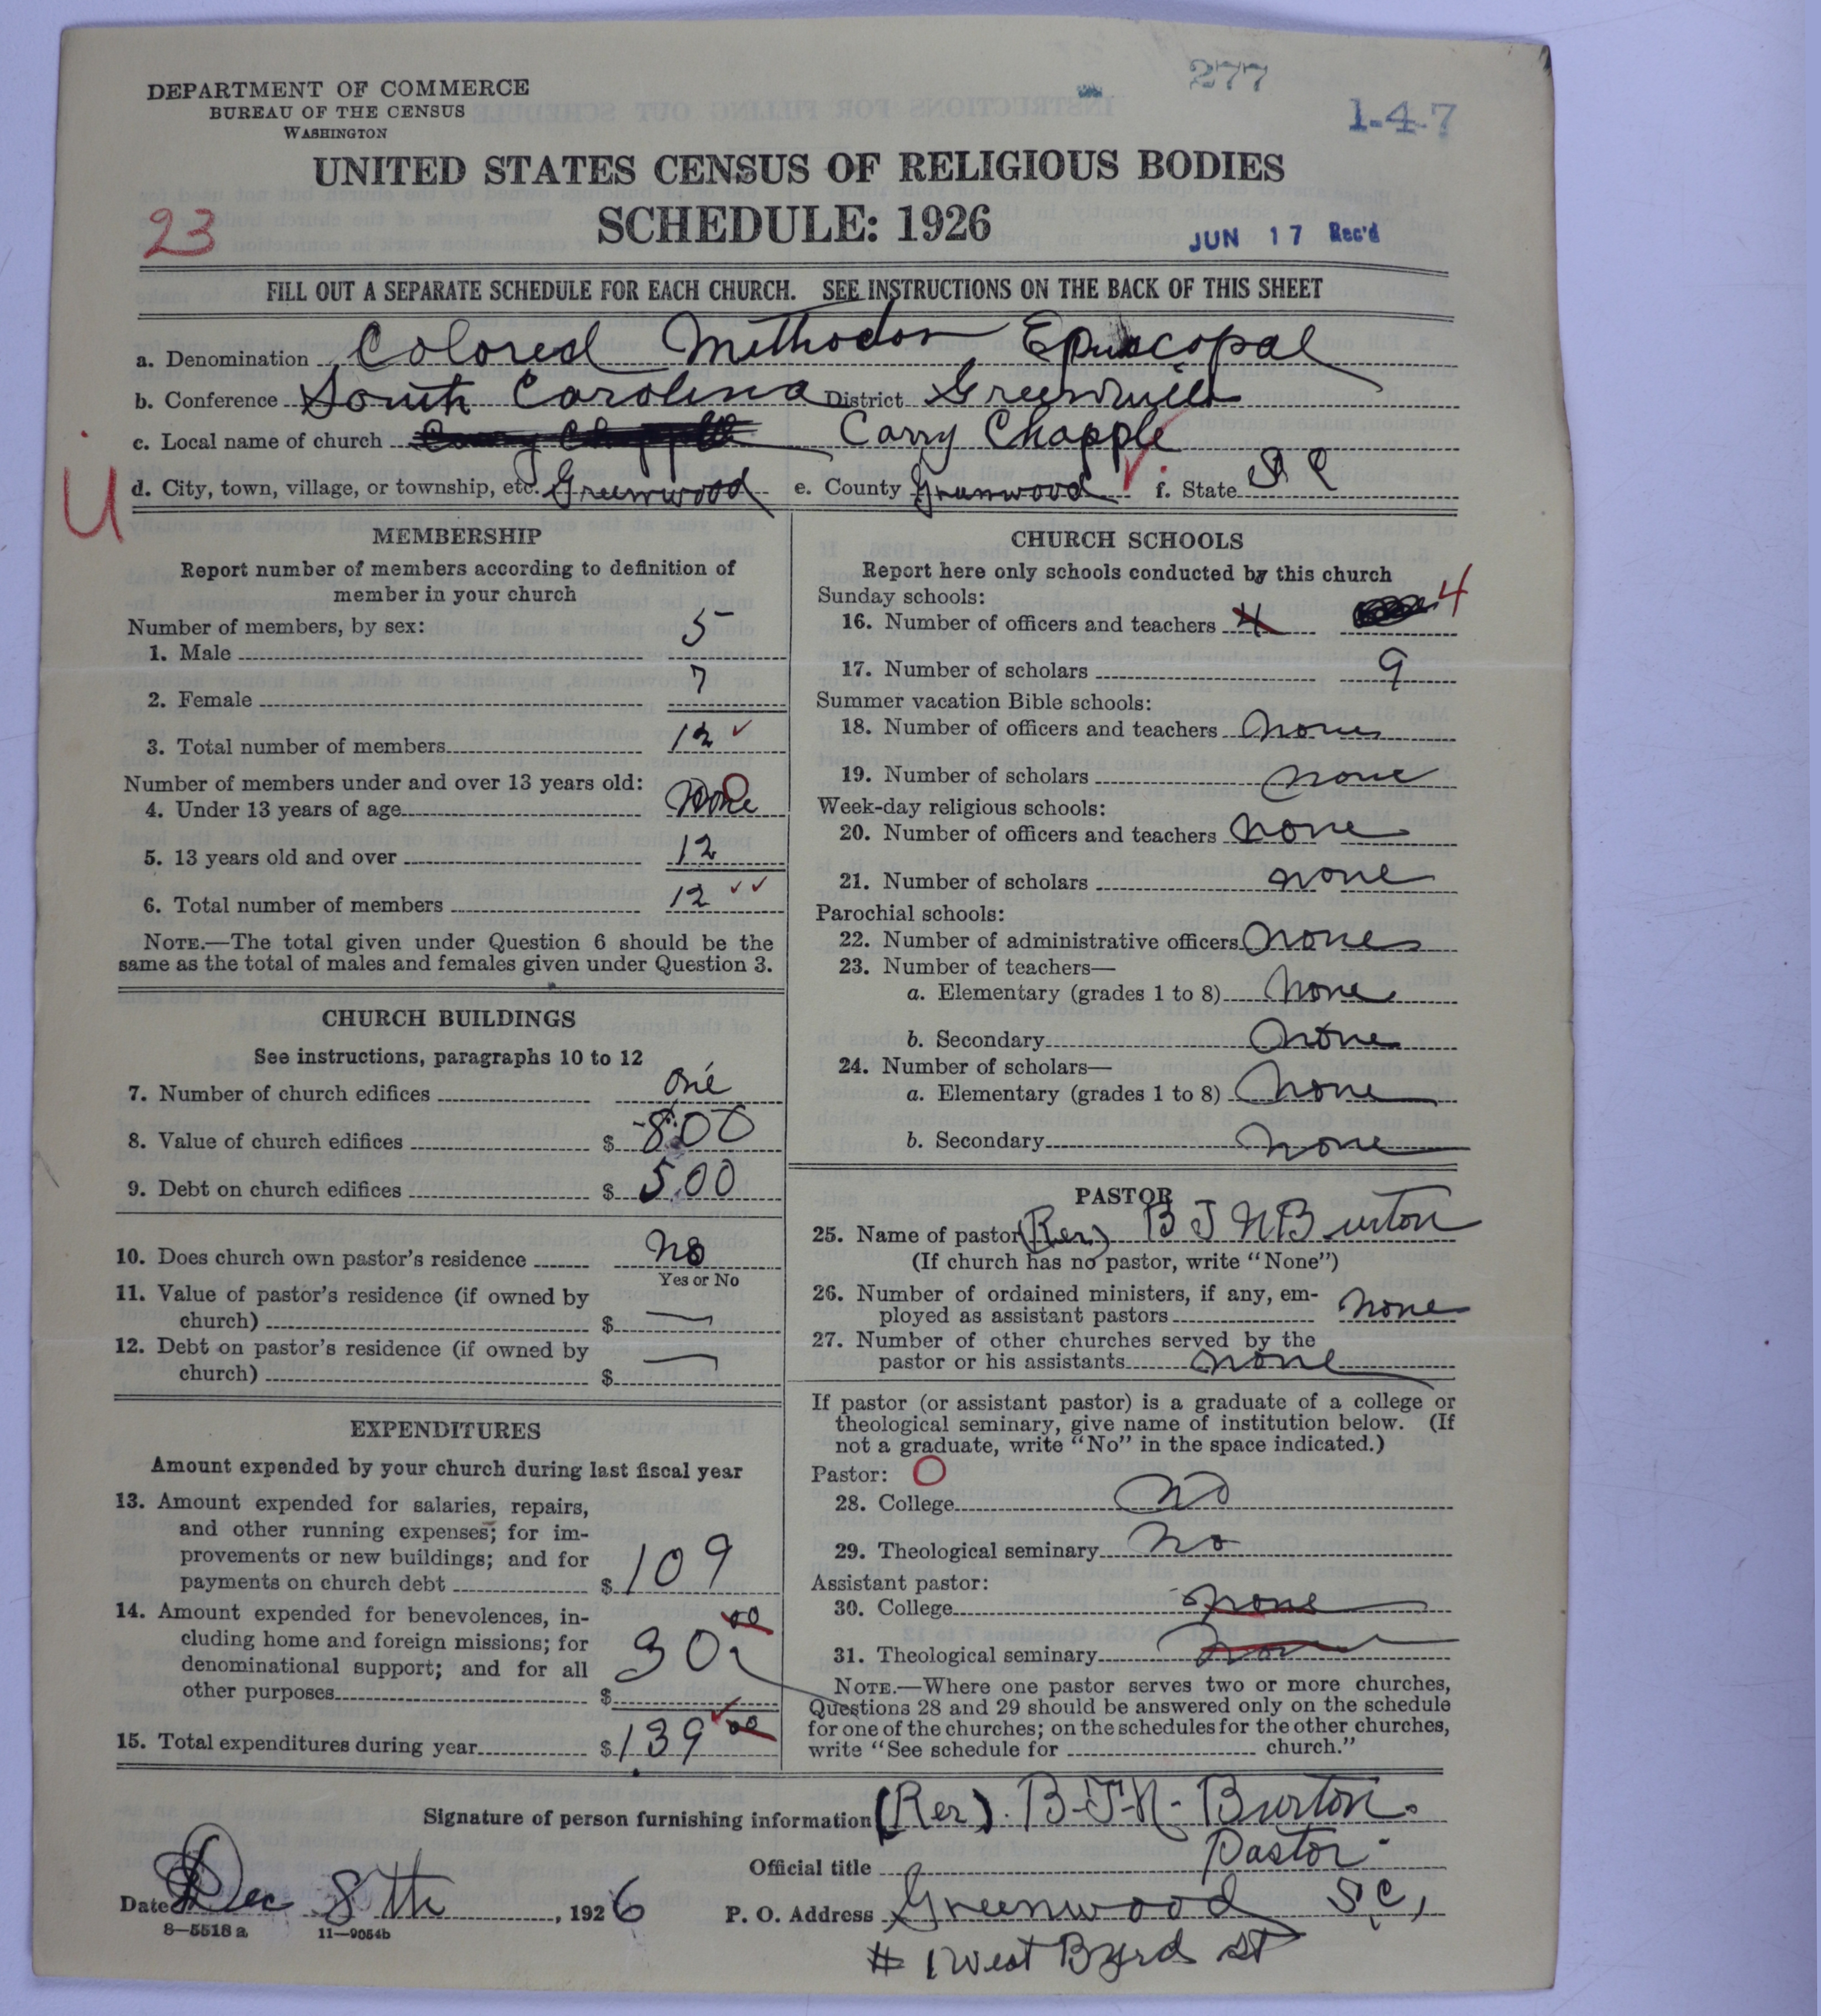 277
1-4-7
DEPARTMENT OF COMMERCE
BUREAU OF THE CENSUS
WASHINGTON
UNITED STATES CENSUS OF RELIGIOUS BODIES
SCHEDULE: 1926
23
JUN 17 Rec'd
FILL OUT A SEPARATE SCHEDULE FOR EACH CHURCH. SEE INSTRUCTIONS ON THE BACK OF THIS SHEET
a. Denomination Colored Methodos Episcopal
b. Conference South Carolina District Greenville
c. Local name of church Carry Chapple
U
d. City, town, village, or township, etc. Greenwood e. County Greenwood f. State S C
MEMBERSHIP
Report number of members according to definition of
member in your church
Number of members, by sex:
1. Male 5
2. Female 7
3. Total number of members 12
Number of members under and over 13 years old:
4. Under 13 years of age None 0
5. 13 years old and over 12
6. Total number of members 12
NOTE.—The total given under Question 6 should be the
same as the total of males and females given under Question 3.
CHURCH BUILDINGS
See instructions, paragraphs 10 to 12
7. Number of church edifices one
8. Value of church edifices $ 800
9. Debt on church edifices $ 5.00
10. Does church own pastor's residence no
Yes or No
11. Value of pastor's residence (if owned by
church) $ —
12. Debt on pastor's residence (if owned by
church) $ —
EXPENDITURES
Amount expended by your church during last fiscal year
13. Amount expended for salaries, repairs,
and other running expenses; for im-
provements or new buildings; and for
payments on church debt $ 109
14. Amount expended for benevolences, in-
cluding home and foreign missions; for
denominational support; and for all
other purposes $ 30 00
15. Total expenditures during year $ 139 00
CHURCH SCHOOLS
Report here only schools conducted by this church
Sunday schools:
16. Number of officers and teachers 4 4
17. Number of scholars 9
Summer vacation Bible schools:
18. Number of officers and teachers none
19. Number of scholars none
Week-day religious schools:
20. Number of officers and teachers none
21. Number of scholars none
Parochial schools:
22. Number of administrative officers none
23. Number of teachers—
a. Elementary (grades 1 to 8) none
b. Secondary none
24. Number of scholars—
a. Elementary (grades 1 to 8) none
b. Secondary none
PASTOR
25. Name of pastor (Rev) B J N Burton
(If church has no pastor, write "None")
26. Number of ordained ministers, if any, em-
ployed as assistant pastors none
27. Number of other churches served by the
pastor or his assistants none
If pastor (or assistant pastor) is a graduate of a college or
theological seminary, give name of institution below. (If
not a graduate, write "No" in the space indicated.)
Pastor: 0
28. College no
29. Theological seminary no
Assistant pastor:
30. College none
31. Theological seminary none
NOTE.—Where one pastor serves two or more churches,
Questions 28 and 29 should be answered only on the schedule
for one of the churches; on the schedules for the other churches,
write "See schedule for church."
Signature of person furnishing information (Rev). B-J-N- Burton.
Official title Pastor
Date Dec 8th, 1926
P. O. Address Greenwood S.C,
# 1 West Byrd St
8—5518 a 11—9054b